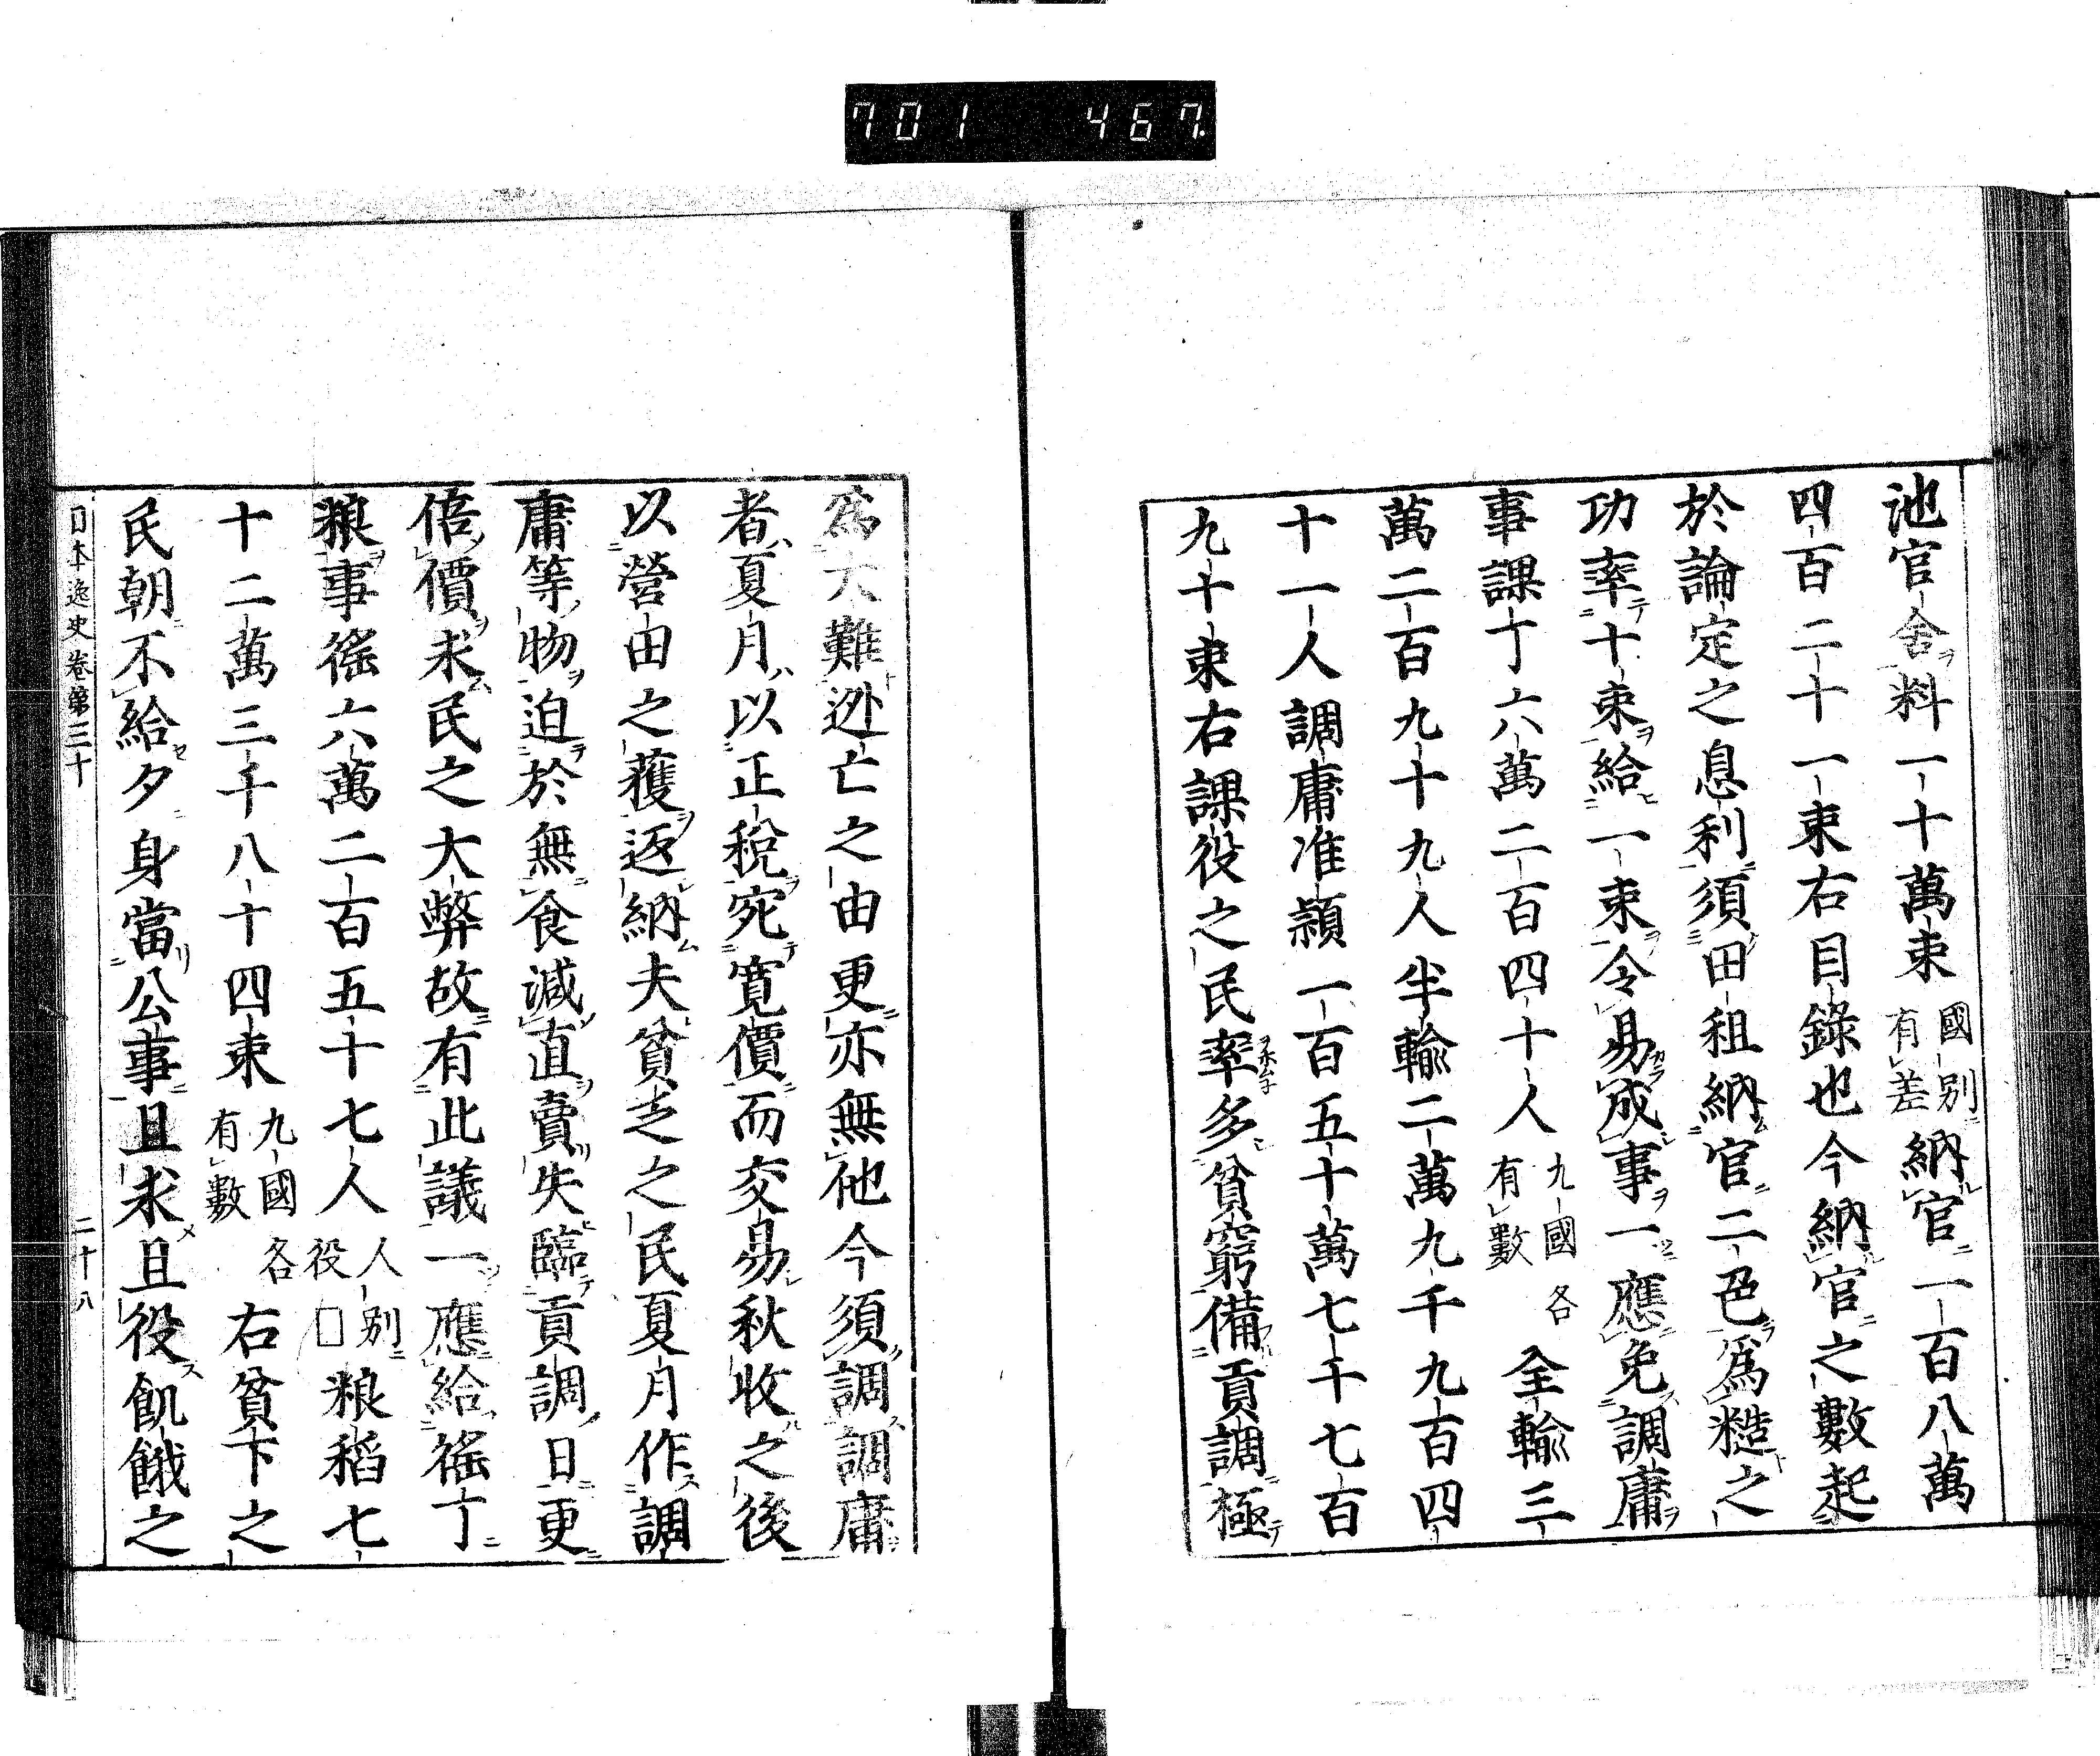 701 467
池官舍料一十萬束國別有差納官一百八萬
四百二十一束右目錄也今納官之數起
於論定之息利須田租納官二色爲糙之
功率十束給一束令易成事一應免調庸
事課丁六萬二百四十人九國各有數全輸三
萬二百九十九人半輸二萬九千九百四
十一人調庸准穎一百五十萬七千七百
九十束右課役之民率多貧窮備貢調極
爲大難逊亡之由更亦無他今須調調庸
者夏月以正稅宛寛價而交易秋收之後
以營田之獲返納夫貧乏之民夏月作調
庸等物迫於無食減直賣失臨貢調日更
倍價求民之大弊故有此議一應給徭丁
粮事徭六萬二百五十七人人別役□粮稻七
十二萬三千八十四束九國各有數右貧下之
民朝不給夕身當公事且求且役飢餓之
日本逸史卷第三十 二十八